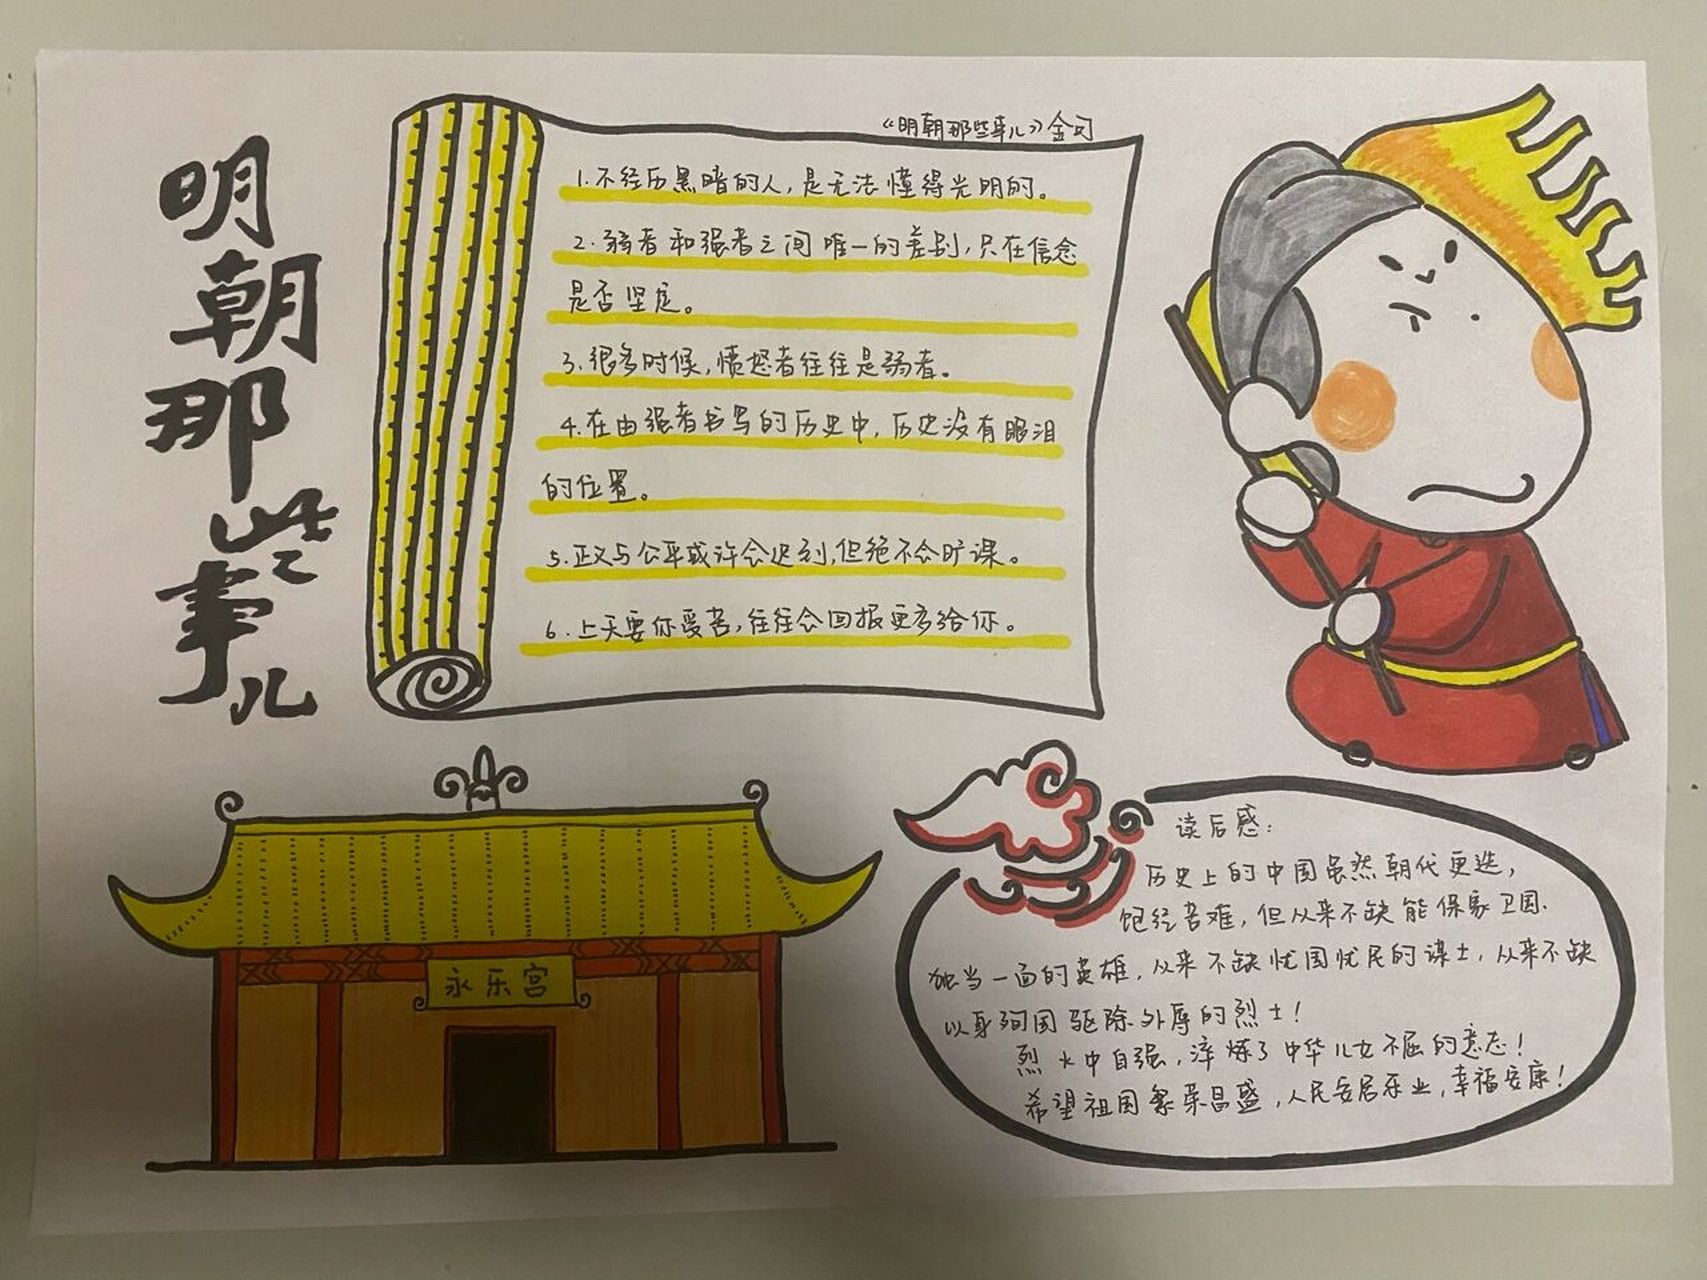 明朝那些事儿
《明朝那些事儿》金句
1.不经历黑暗的人，是无法懂得光明的。
2.弱者和强者之间唯一的差别，只在信念
是否坚定。
3.很多时候，愤怒者往往是弱者。
4.在由强者书写的历史中，历史没有眼泪
的位置。
5.正义与公平或许会迟到，但绝不会旷课。
6.上天要你受苦，往往会回报更多给你。
永乐宫
读后感：
历史上的中国虽然朝代更迭，
饱经苦难，但从来不缺能保家卫国、
独当一面的英雄，从来不缺忧国忧民的谋士，从来不缺
以身殉国驱除外辱的烈士！
烈火中自强，淬炼了中华儿女不屈的意志！
希望祖国繁荣昌盛，人民安居乐业，幸福安康！